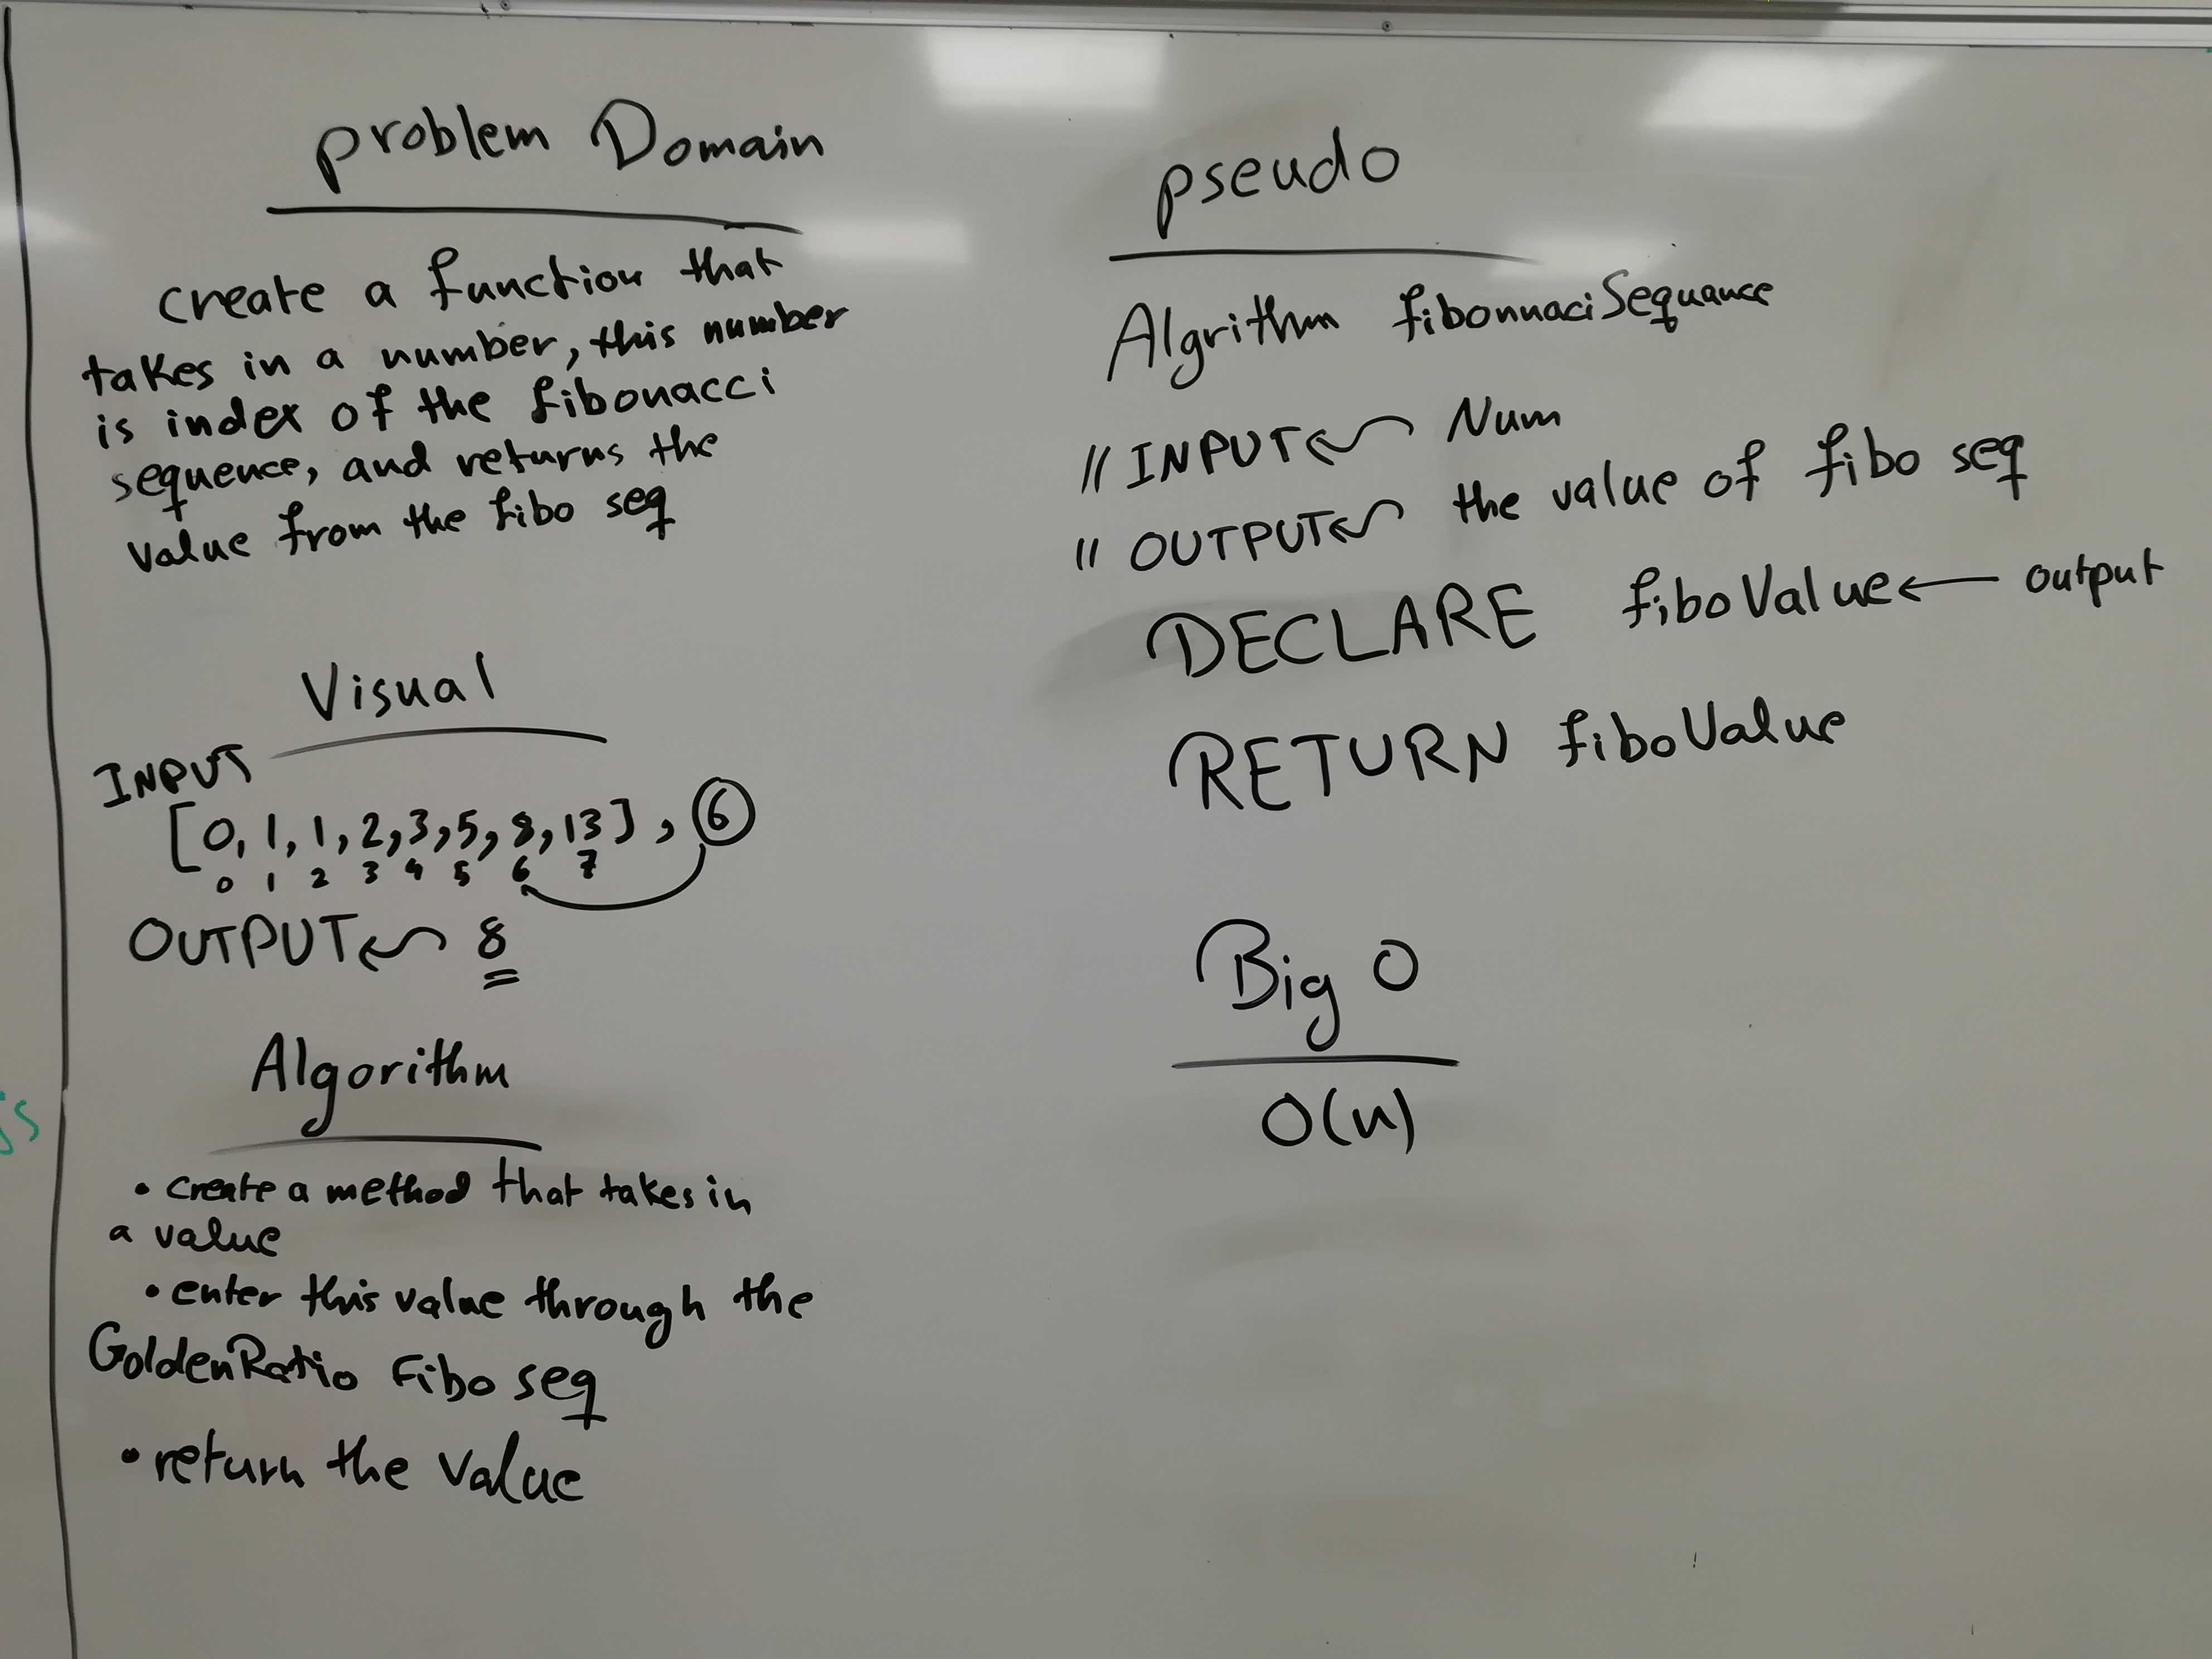 problem Domain
create a function that
takes in a number, this number
is index of the fibonacci
sequence, and returns the
value from the fibo seq
Visual
INPUT
[0, 1, 1, 2, 3, 5, 8, 13] , 6
0 1 2 3 4 5 6 7
OUTPUT ← 8
Algorithm
• create a method that takes in
a value
• enter this value through the
GoldenRatio Fibo seq
• return the value
pseudo
Algrithm fibonnaciSequance
// INPUT ← Num
// OUTPUT ← the value of fibo seq
DECLARE fiboValue ← output
RETURN fiboValue
Big O
O(n)